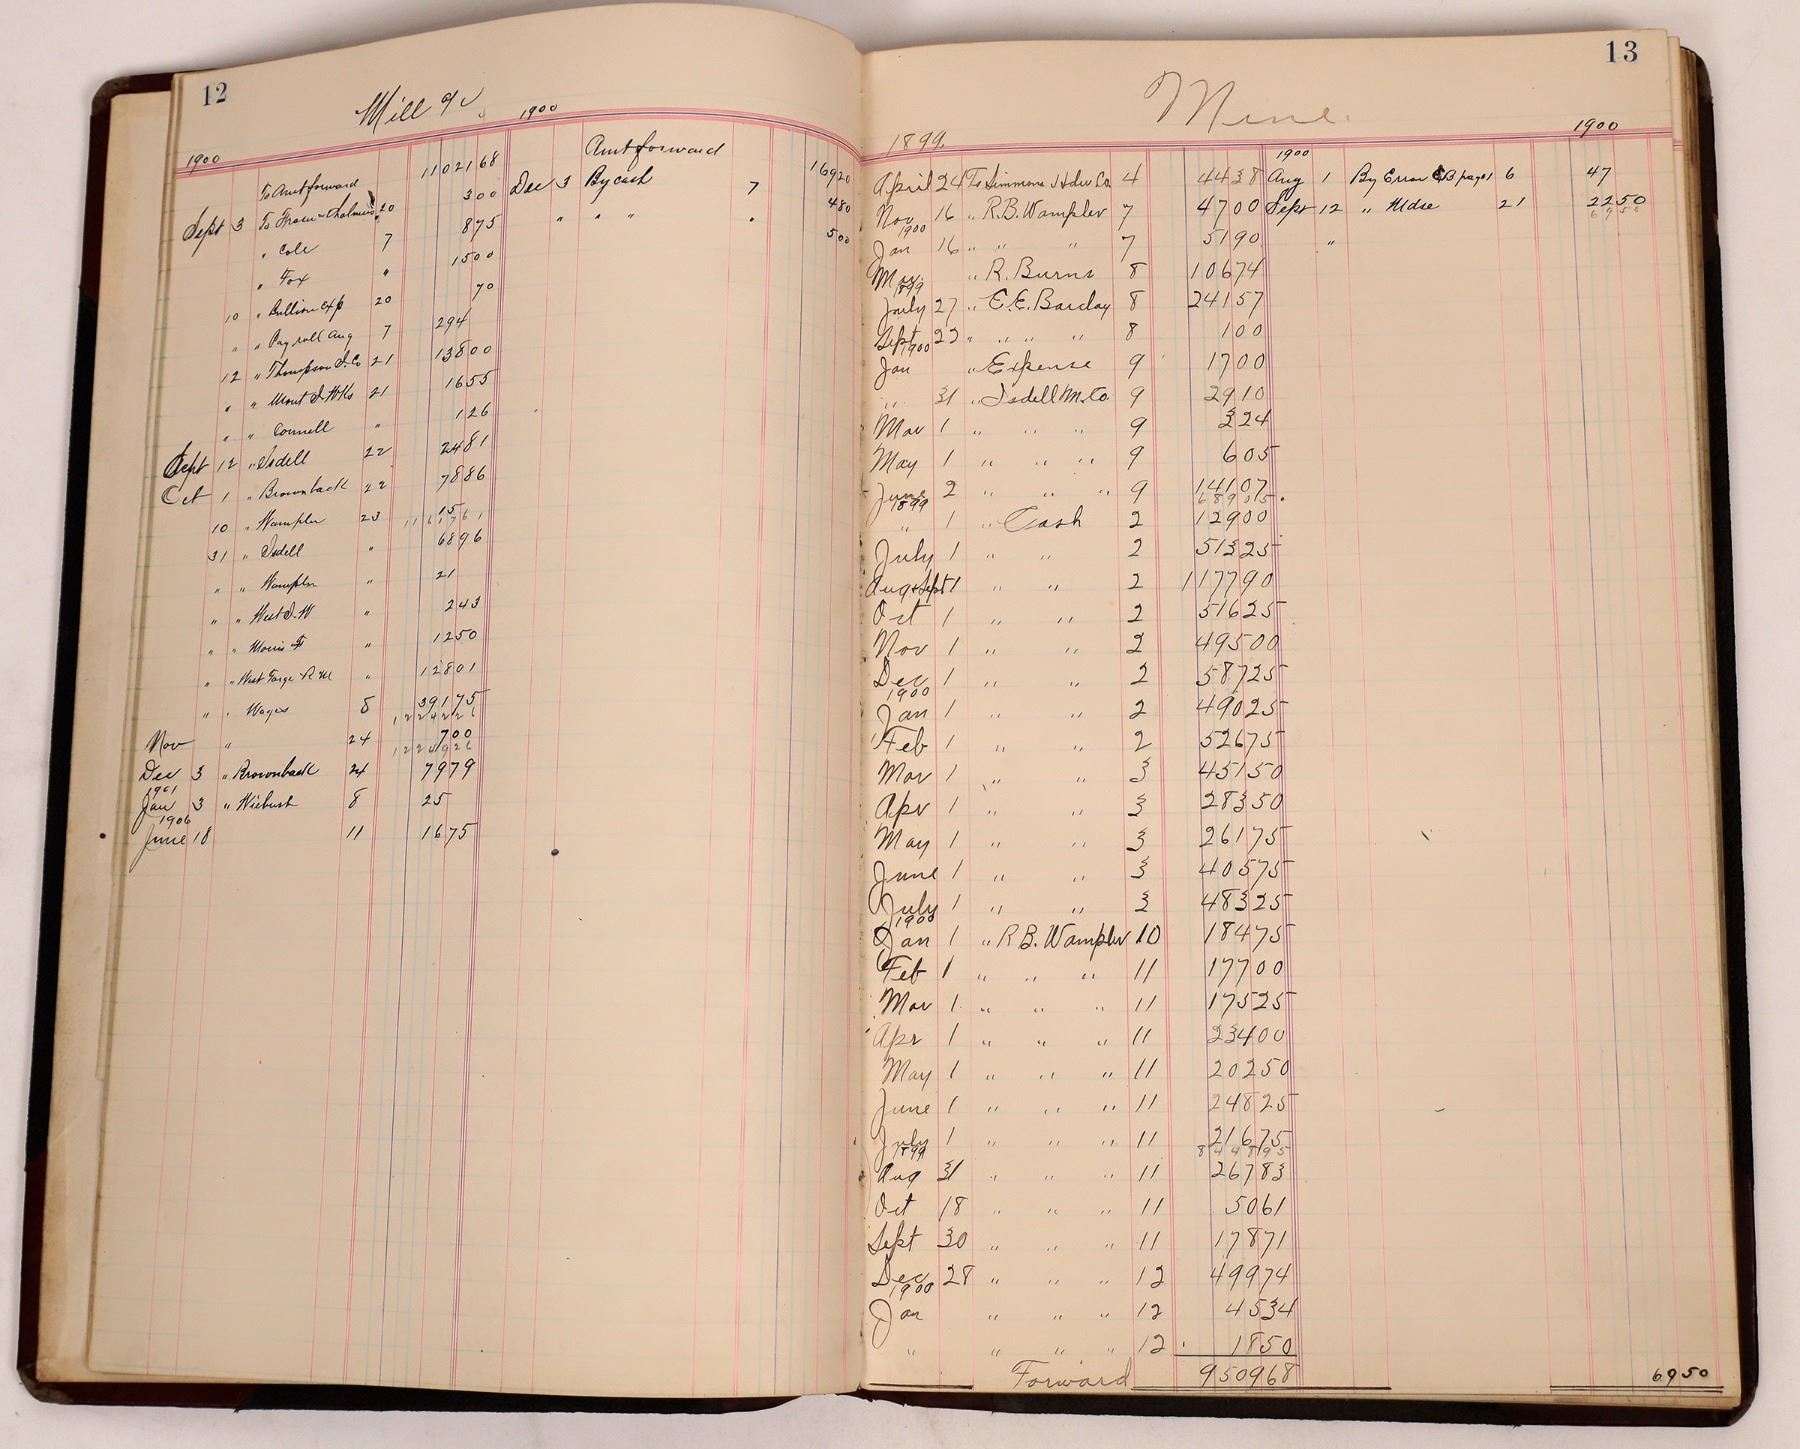 12
Mill a/c 1900
1900
To Amt forward 1102168 Amt forward 16920
Sept 3 To Fraser-Chalmers 20 300 Dec 3 By cash 7 480
" Cole 7 875 " " " " 500
" Fox " 1500
10 " Bullion Exp 20 70
" " Pay roll Aug 7 294
12 " Thompson I. Co 21 13800
" " Mont I. Wks 21 1655
" " Connell " 126
Sept 12 " Isdell 22 2481
Oct 1 " Brownback 22 7886
10 " Wampler 23 15
1161761
31 " Isdell " 6896
" " Wampler " 21
" " West I. W " 243
" " Morris " 1250
" " West Forge " 12801
" " Wages 5 39175
1224226
Nov " 24 700
1224926
Dec 3 " Brownback 24 7979
1901
Jan 3 " Wiebush 8 25
1906
June 18 11 1675
13
Mine.
1899. 1900 1900
April 24 To Simmons Hdw Co. 4 4438 Aug 1 By Error CB page 1 6 47
Nov 16 " R.B. Wampler 7 4700 Sept 12 " Mdse 21 2250
6950
1900
Jan 16 " " " 7 5190 "
May " R. Burns 8 10674
1899
July 27 " E.E. Barclay 8 24157
Sept 22 " " " " 8 100
1900
Jan " Expense 9 1700
" 31 " Isdell M. Co. 9 2910
Mar 1 " " " 9 324
May 1 " " " 9 605
June 2 " " " 9 14107
68905
1899
" 1 " Cash 2 12900
July 1 " " 2 51325
Aug & Sept 1 " " 2 117790
Oct 1 " " 2 51625
Nov 1 " " 2 49500
Dec 1 " " 2 58725
1900
Jan 1 " " 2 49025
Feb 1 " " 2 52675
Mar 1 " " 3 45150
Apr 1 " " 3 28350
May 1 " " 3 26175
June 1 " " 3 40575
July 1 " " 3 48325
1900
Jan 1 " R B. Wampler 10 18475
Feb 1 " " " 11 17700
Mar 1 " " " 11 17525
Apr 1 " " " 11 23400
May 1 " " " 11 20250
June 1 " " " 11 24825
July 1 " " " 11 21675
844895
1899
Aug 31 " " " 11 26783
Oct 18 " " " 11 5061
Sept 30 " " " 11 17871
Dec 28 " " " 12 49974
1900
Jan " " " 12 4534
" " " " 12 1850
Forward 950968 6950